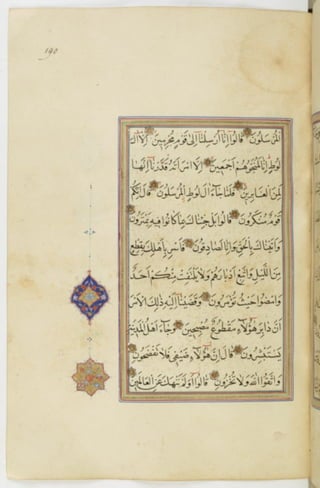 190
المرسلون قالوا انا ارسلنا الى قوم مجرمين الا ال
لوط انا لمنجوهم اجمعين الا امراته قدرنا انها
لمن الغابرين فلما جاء ال لوط المرسلون قال انكم
قوم منكرون قالوا بل جئناك بما كانوا فيه يمترون
واتيناك بالحق وانا لصادقون فاسر باهلك بقطع
من الليل واتبع ادبارهم ولا يلتفت منكم احد
وامضوا حيث تؤمرون وقضينا اليه ذلك الامر
ان دابر هؤلاء مقطوع مصبحين وجاء اهل المدينة
يستبشرون قال ان هؤلاء ضيفي فلا تفضحون
واتقوا الله ولا تخزون قالوا اولم ننهك عن العالمين